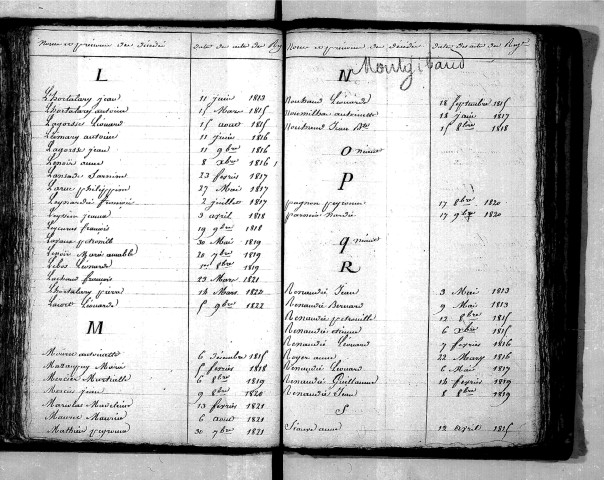 Noms et prénoms des décédés
Date des actes des Reg
L
Lhortalary jean 11 juin 1813
Lhortalary antoine 15 Mars 1815
Lagorsse Léonard 15 aout 1815
Leymary antoine 11 juin 1816
Lagorsse jean 11 9bre 1816
Lenoir anne 8 Xbre 1816
Lansade 23 fevrier 1817
Larue philippion 27 Mai 1817
Leynardie françois 2 juillet 1817
Leyssen jeanne 3 avril 1818
françois 19 9bre 1818
Lavaux petronille 30 Mai 1819
Lenoir Marie aimable 20 7bre 1819
Lebos Léonard 1er 8bre 1819
Lachaud françois 23 Mars 1821
Lhortalary pierre 14 Mars 1820
Léonarde 5 9bre 1822
M
Mouret antoinette 6 décembre 1815
Mazaupuy Marie 5 fevrier 1818
Mercier Martialle 6 8bre 1819
Mercier jean 9 8bre 1820
Marielas Madeleine 13 fevrier 1821
Maurie Maurice 6 aout 1821
Mathieu peyronne 30 7bre 1821
Noms et prénoms des décédés
Date des actes des Regt
Montgibaud
N
Nouhaud Léonard 18 Septembre 1815
Noumilhou antoinette 18 juin 1817
Nouhaud Jean Bte 15 8bre 1818
O néant
P
pagnon peyronne 17 8bre 1820
parvier Marie 17 9bre 1820
q néant
R
Renaudie Jean 3 Mai 1813
Renaudie Bernard 9 Mai 1813
Renaudie petronille 12 8bre 1815
Renaudie etienne 6 Xbre 1815
Renaudie Léonard 7 fevrier 1816
Royer anne 22 Mars 1816
Renaudie Léonard 6 Mai 1817
Renaudie Guillaume 14 fevrier 1819
Renaudie Jean 8 8bre 1819
S
anne 12 avril 1815